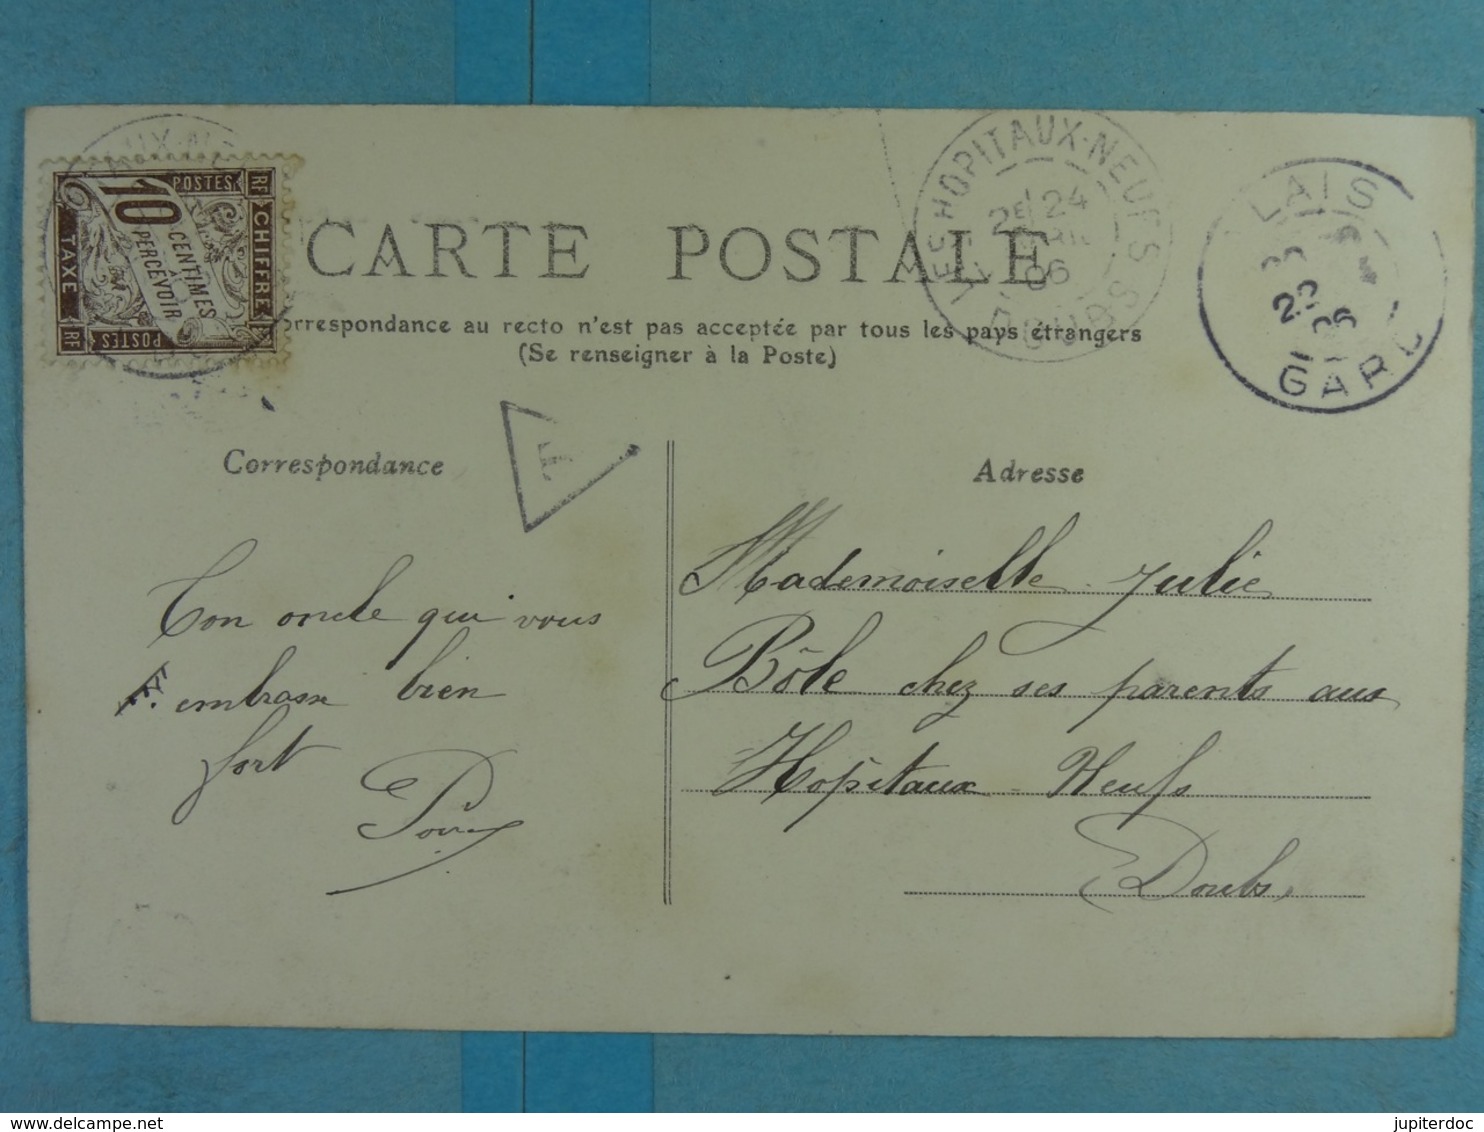 LES HOPITAUX-NEUFS
2E 24
06
DOUBS
LAIS
22
06
GARD
POSTES RF
10 CENTIMES
À
PERCEVOIR
CHIFFRE
TAXE
RF POSTES
CARTE POSTALE
orrespondance au recto n'est pas acceptée par tous les pays étrangers
(Se renseigner à la Poste)
T
Correspondance
Adresse
Ton oncle qui vous
embrasse bien
fort
Mademoiselle Julie
Bôle chez ses parents aux
Hopitaux Neufs
Doubs
jupiterdoc